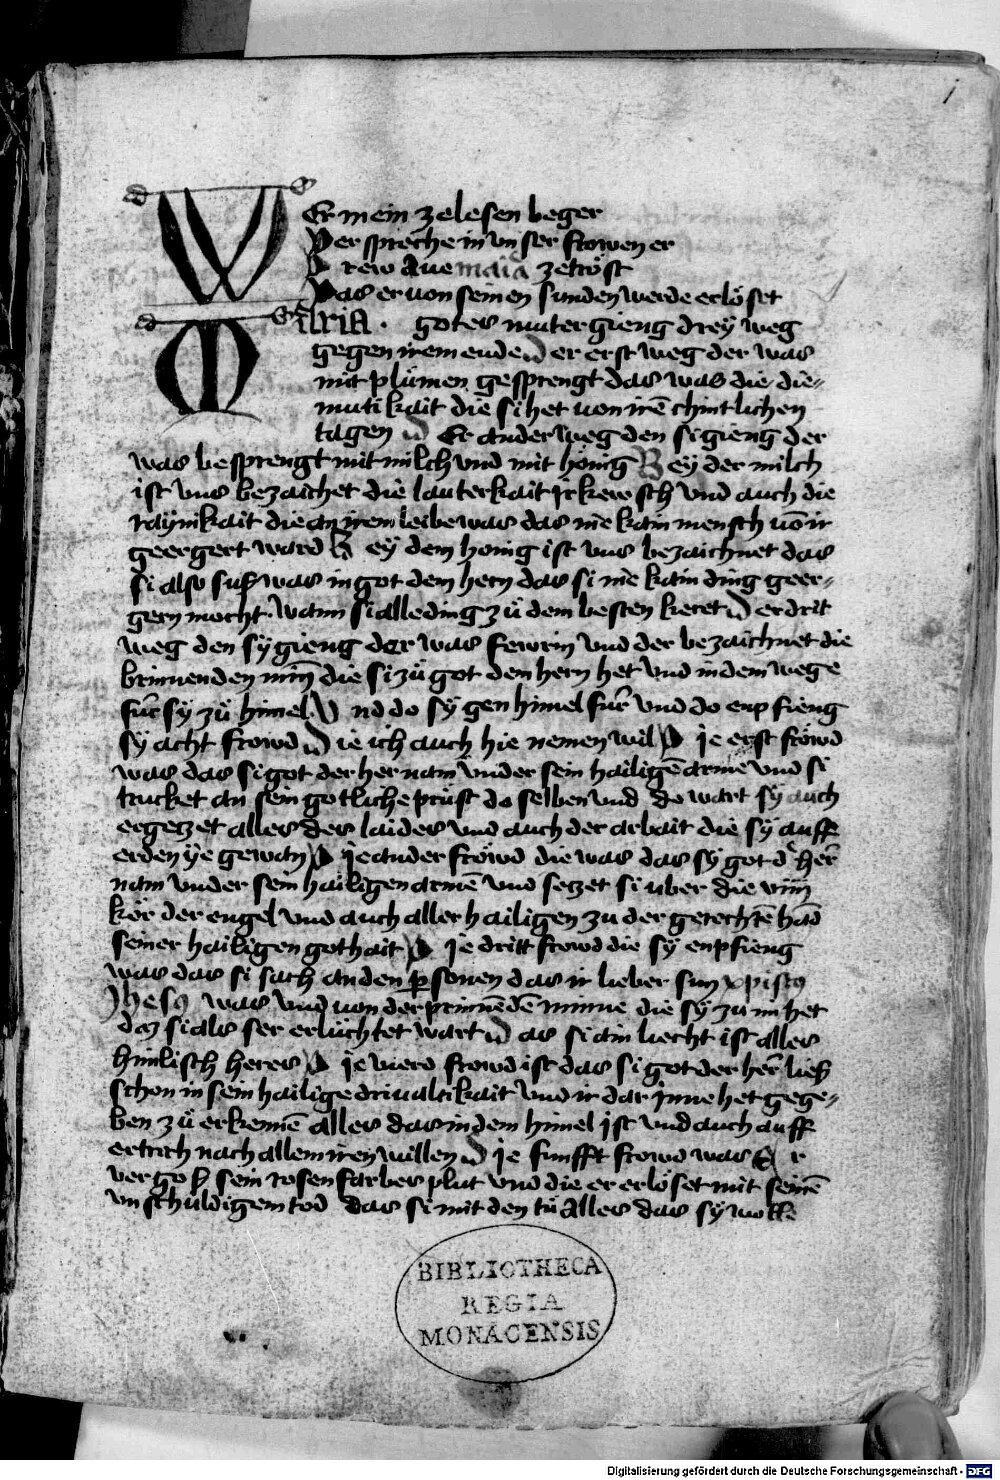 1
WEr mein zelesen beger
Der spreche in vnser frowen er
D rew Aue maia zetröst
Das er von seinen sunden werde erlöset
MAria . gotes muter gieng dreÿ weg
gegen irem ende D er erst weg der was
mit plümen gesprengt das was die die-
mutikait die si het von irē chintlichen
tagen D Er ander weg den si gieng der
was besprengt mit milch vnd mit hönig B ey der milch
ist vns bezaichet die lauterkait ir kewsch vnd auch die
raÿnikait die an irem leibe was das nie kain mensch vō ir
geergert ward B ey dem honig ist vns bezaichnet das
si also suß was in got dem hern das si nie kain ding geer-
gern mocht . wann si alle ding zü dem besten keret D er drit
weg den sÿ gieng der was fewrin vnd der bezaichnet die
brinnenden miñ die si zü got dem hern het vnd in dem wege
für sÿ zü himel V nd do sÿ gen himel für vnd do enpfieng
sÿ acht frowd D ie ich auch hie nemen wil D ie erst fröwd
was das si got der her nam vnder sein hailigē arme vnd si
trucket an sein gotliche prust do selben vnd do wart sÿ auch
ergeczet alles des laides vnd auch der arbait die sÿ auff
erden ÿe gewan D ie ander fröwd die was das sÿ got d' her̄
nam vnder sein hailigen armē vnd seczet si uber die viiij
kör der engel vnd auch aller hailigen zu der gerechtē hād
seiner hailigen gothait D ie dritt frowd die sÿ enpfieng
was das si sach an den ꝑsonen das ir lieber sun xpistꝯ
Jhesꝯ was vnd von der prinnēdē minne die sÿ zu im het
daz si als ser erlüchtet wart D as si ain liecht ist alles
himlisch heres D ie vierd frowd ist das si got der her̄ ließ
schon in sein hailige driualtikait vnd ir dar jnne het gege-
ben zü erkennē alles das in dem himel ist vnd auch auff
ertrich nach allem iren willen D ie funfft frowd was E r
vergoß sein rosenfarbes plut vnd die er erlöset mit seinē
vnschuldigem tod das si mit den tü Alles das sÿ wolle
BIBLIOTHECA
REGIA
MONACENSIS
Digitalisierung gefördert durch die Deutsche Forschungsgemeinschaft - DFG